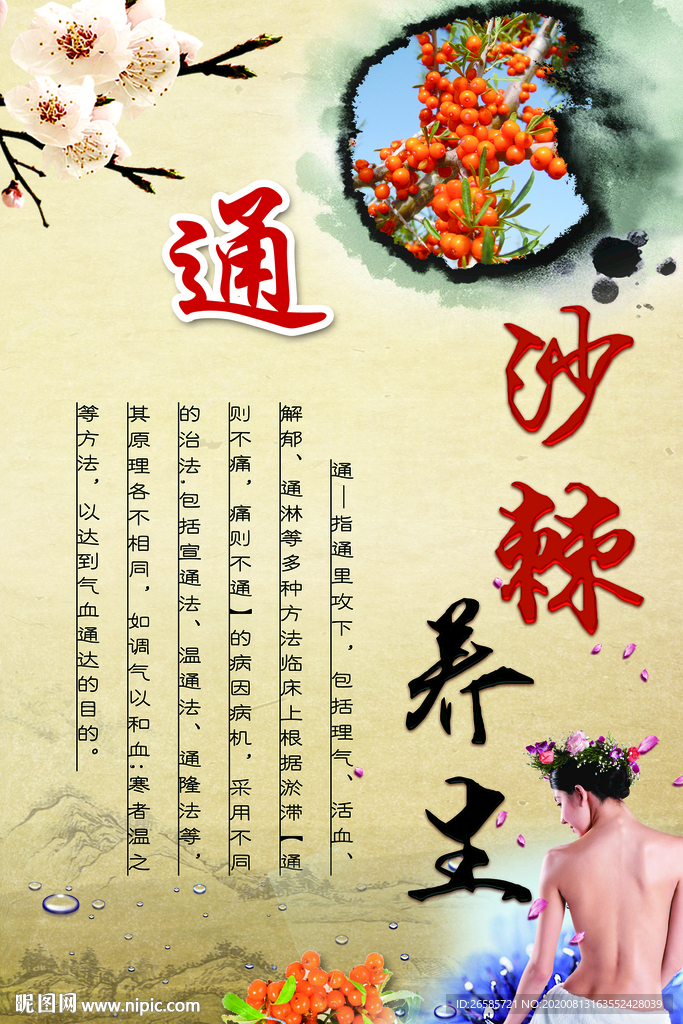 通
沙棘
养生
通—指通里攻下，包括理气、活血、
解郁、通淋等多种方法临床上根据淤滞【通
则不痛，痛则不通】的病因病机，采用不同
的治法,包括宣通法、温通法、通隆法等，
其原理各不相同，如调气以和血:寒者温之
等方法，以达到气血通达的目的。
昵图网 www.nipic.com
ID:26585721 NO:20200813163552428039